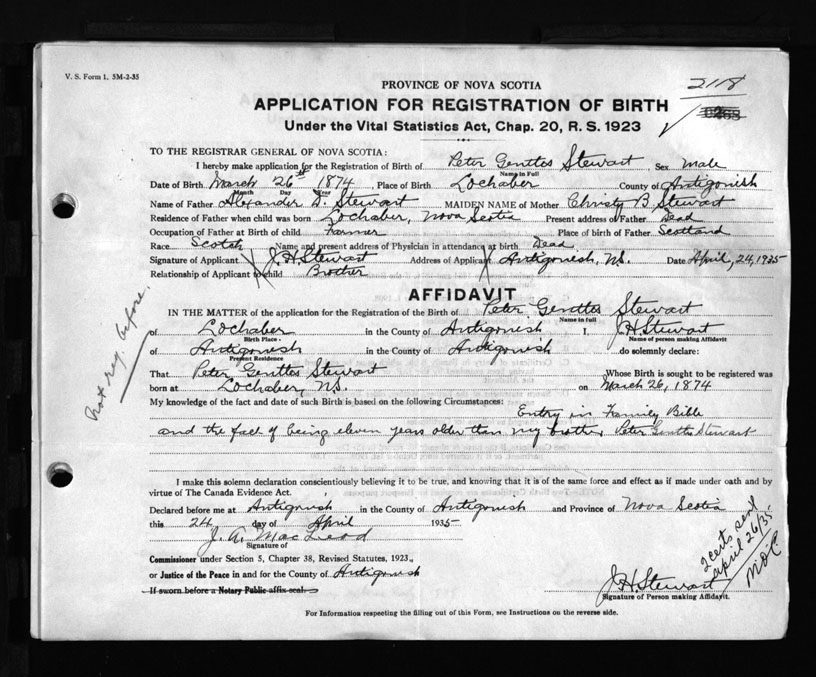 V. S. Form 1. 5M-2-35
PROVINCE OF NOVA SCOTIA
2118
APPLICATION FOR REGISTRATION OF BIRTH
Under the Vital Statistics Act, Chap. 20, R. S. 1923
TO THE REGISTRAR GENERAL OF NOVA SCOTIA:
I hereby make application for the Registration of Birth of Peter Genttos Stewart Sex Male
Name in Full
Date of Birth March 26th 1874, Place of Birth Lochaber County of Antigonish
Month Day Year
Name of Father Alexander D. Stewart MAIDEN NAME of Mother Christy B. Stewart
Residence of Father when child was born Lochaber, Nova Scotia Present address of Father Dead
Occupation of Father at Birth of child Farmer Place of birth of Father Scotland
Race Scotch Name and present address of Physician in attendance at birth Dead
Signature of Applicant J. H. Stewart Address of Applicant Antigonish, N.S. Date April, 24, 1935
Relationship of Applicant to child Brother
AFFIDAVIT
IN THE MATTER of the application for the Registration of the Birth of Peter Genttos Stewart
Name in full
of Lochaber in the County of Antigonish I, J. H. Stewart
Birth Place - Name of person making Affidavit
of Antigonish in the County of Antigonish do solemnly declare:
Present Residence
That Peter Genttos Stewart Whose Birth is sought to be registered was
born at Lochaber, N.S. on March 26, 1874
My knowledge of the fact and date of such Birth is based on the following Circumstances: Entry in Family Bible
and the fact of being eleven years older than my brother, Peter Genttos Stewart
I make this solemn declaration conscientiously believing it to be true, and knowing that it is of the same force and effect as if made under oath and by
virtue of The Canada Evidence Act.
Declared before me at Antigonish in the County of Antigonish and Province of Nova Scotia
this 24 day of April 1935
J. A. MacLeod
Signature of
Commissioner under Section 5, Chapter 38, Revised Statutes, 1923.,
or Justice of the Peace in and for the County of Antigonish
If sworn before a Notary Public affix seal.
J. H. Stewart
Signature of Person making Affidavit.
For Information respecting the filling out of this Form, see Instructions on the reverse side.
Not reg. before.
2 cert. sent
April 26/35